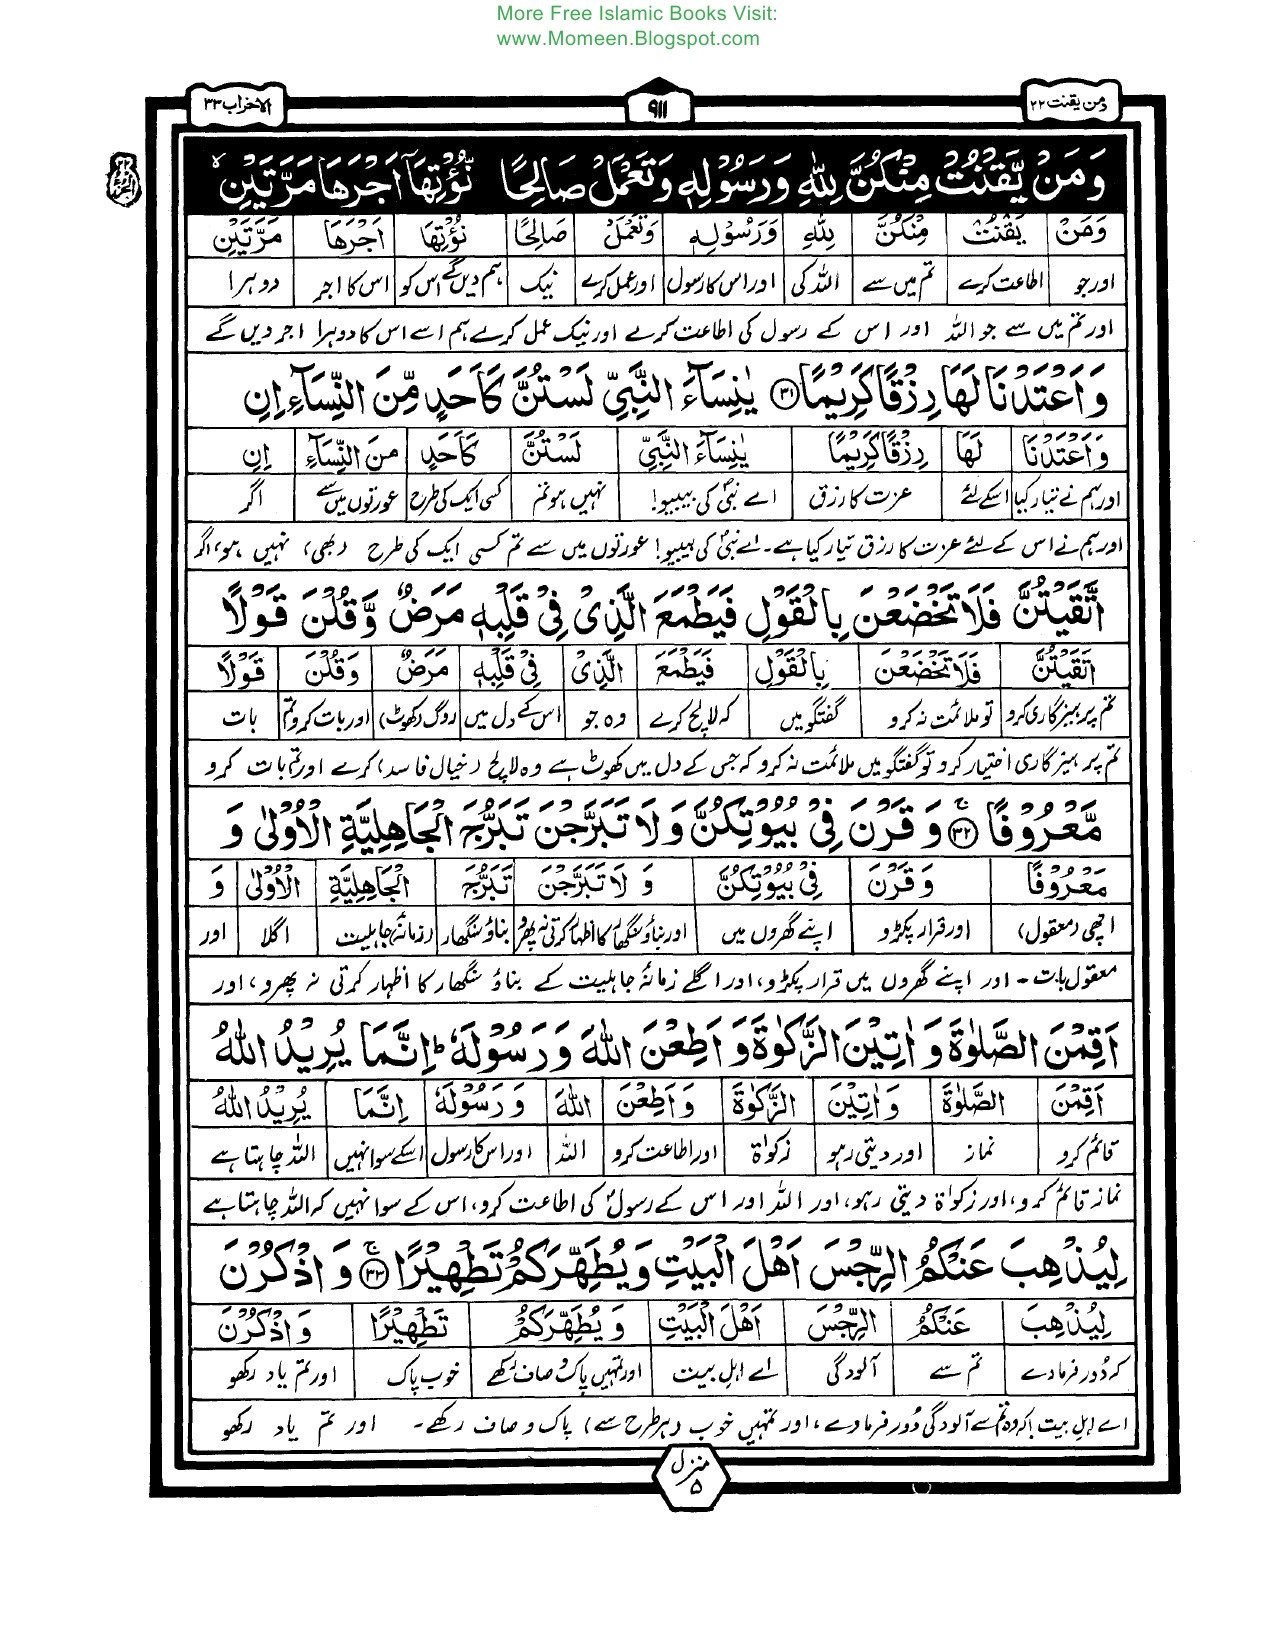 More Free Islamic Books Visit:
www.Momeen.Blogspot.com
ومن یقنت ۲۲
۹۱۱
الاحزاب ۳۳
وَمَنْ يَّقْنُتْ مِنْكُنَّ لِلّٰهِ وَرَسُوْلِهٖ وَتَعْمَلْ صَالِحًا نُّؤْتِهَآ اَجْرَهَا مَرَّتَيْنِ ۙ
وَمَنْ يَقْنُتْ مِنْكُنَّ لِلّٰهِ وَرَسُوْلِهٖ وَتَعْمَلْ صَالِحًا نُؤْتِهَا اَجْرَهَا مَرَّتَيْنِ
اور جو اطاعت کرے تم میں سے اللہ کی اور اس کا رسول اور عمل کرے نیک ہم دیں گے اس کو اس کا اجر دوہرا
اور تم میں سے جو اللہ اور اس کے رسول کی اطاعت کرے اور نیک عمل کرے ہم اسے اس کا دوہرا اجر دیں گے
وَاَعْتَدْنَا لَهَا رِزْقًا كَرِيْمًا ۳۱ يٰنِسَآءَ النَّبِيِّ لَسْتُنَّ كَاَحَدٍ مِّنَ النِّسَآءِ اِنِ
وَاَعْتَدْنَا لَهَا رِزْقًا كَرِيْمًا يٰنِسَآءَ النَّبِيِّ لَسْتُنَّ كَاَحَدٍ مِنَ النِّسَآءِ اِنِ
اور ہم نے تیار کیا اسکے لئے عزت کا رزق اے نبیؐ کی بیبیو! نہیں ہو تم کسی ایک کی طرح عورتوں میں سے اگر
اور ہم نے اس کے لئے عزت کا رزق تیار کیا ہے۔ اے نبیؐ کی بیبیو! عورتوں میں سے تم کسی ایک کی طرح (بھی) نہیں ہو، اگر
اتَّقَيْتُنَّ فَلَا تَخْضَعْنَ بِالْقَوْلِ فَيَطْمَعَ الَّذِىْ فِىْ قَلْبِهٖ مَرَضٌ وَّقُلْنَ قَوْلًا
اتَّقَيْتُنَّ فَلَا تَخْضَعْنَ بِالْقَوْلِ فَيَطْمَعَ الَّذِىْ فِىْ قَلْبِهٖ مَرَضٌ وَقُلْنَ قَوْلًا
تم پرہیزگاری کرو تو ملائمت نہ کرو گفتگو میں کہ لالچ کرے وہ جو اس کے دل میں روگ (کھوٹ) اور بات کرو تم بات
تم پرہیزگاری اختیار کرو تو گفتگو میں ملائمت نہ کرو کہ جس کے دل میں کھوٹ ہے وہ لالچ (خیال فاسد) کرے اور تم بات کرو
مَّعْرُوْفًا ۳۲ۚ وَقَرْنَ فِىْ بُيُوْتِكُنَّ وَلَا تَبَرَّجْنَ تَبَرُّجَ الْجَاهِلِيَّةِ الْاُوْلٰى وَ
مَعْرُوْفًا وَقَرْنَ فِىْ بُيُوْتِكُنَّ وَ لَا تَبَرَّجْنَ تَبَرُّجَ الْجَاهِلِيَّةِ الْاُوْلٰى وَ
اچھی (معقول) اور قرار پکڑو اپنے گھروں میں اور بناؤ سنگھار کا اظہار کرتی نہ پھرو بناؤ سنگھار (زمانۂ) جاہلیت اگلا اور
معقول بات۔ اور اپنے گھروں میں قرار پکڑو، اور اگلے زمانۂ جاہلیت کے بناؤ سنگھار کا اظہار کرتی نہ پھرو، اور
اَقِمْنَ الصَّلٰوةَ وَاٰتِيْنَ الزَّكٰوةَ وَاَطِعْنَ اللّٰهَ وَرَسُوْلَهٗ ؕ اِنَّمَا يُرِيْدُ اللّٰهُ
اَقِمْنَ الصَّلٰوةَ وَاٰتِيْنَ الزَّكٰوةَ وَاَطِعْنَ اللّٰهَ وَرَسُوْلَهٗ اِنَّمَا يُرِيْدُ اللّٰهُ
قائم کرو نماز اور دیتی رہو زکوٰۃ اور اطاعت کرو اللہ اور اس کا رسول اسکے سوا نہیں اللہ چاہتا ہے
نماز قائم کرو، اور زکوٰۃ دیتی رہو، اور اللہ اور اس کے رسولؐ کی اطاعت کرو، اس کے سوا نہیں کہ اللہ چاہتا ہے
لِيُذْهِبَ عَنْكُمُ الرِّجْسَ اَهْلَ الْبَيْتِ وَيُطَهِّرَكُمْ تَطْهِيْرًا ۳۳ۚ وَاذْكُرْنَ
لِيُذْهِبَ عَنْكُمُ الرِّجْسَ اَهْلَ الْبَيْتِ وَيُطَهِّرَكُمْ تَطْهِيْرًا وَاذْكُرْنَ
کہ دور فرما دے تم سے آلودگی اے اہل بیت اور تمہیں پاک و صاف رکھے خوب پاک اور تم یاد رکھو
اے اہل بیت! کہ وہ تم سے آلودگی دُور فرما دے، اور تمہیں خوب (ہر طرح سے) پاک و صاف رکھے۔ اور تم یاد رکھو
منزل
۵